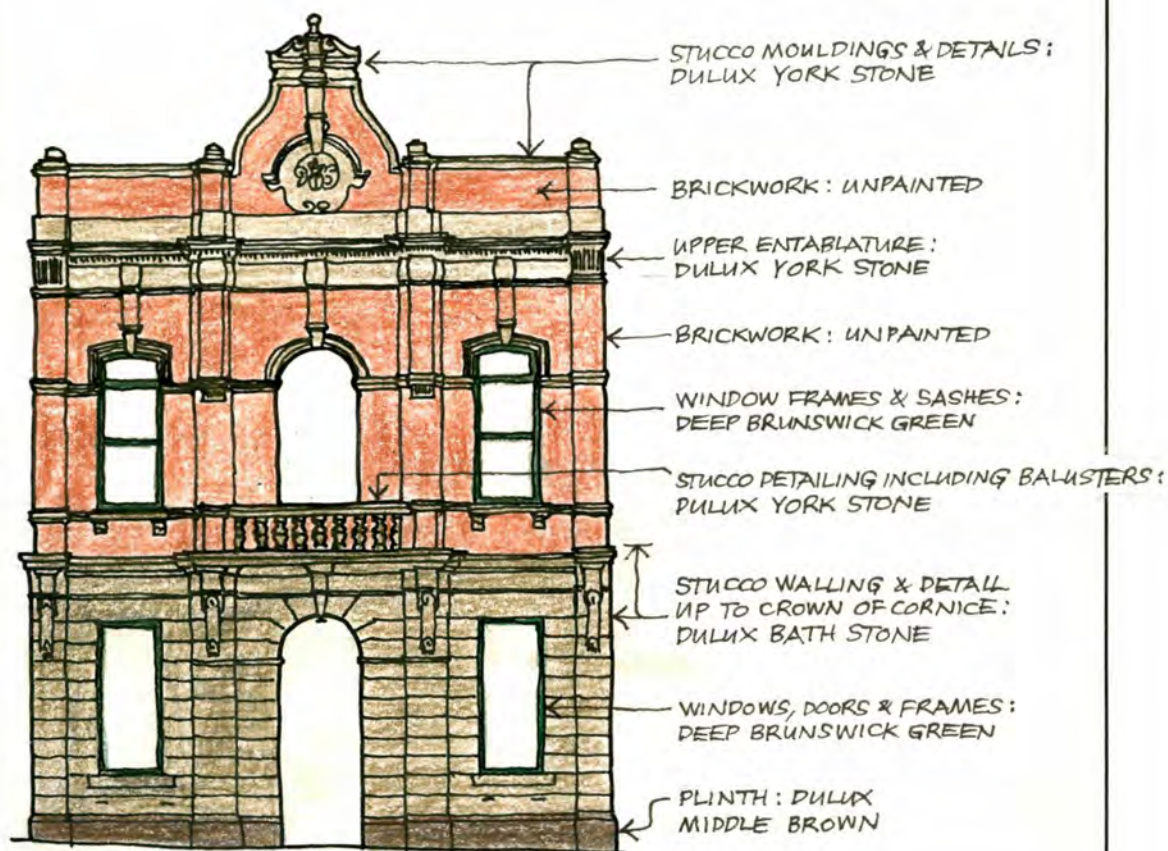 STUCCO MOULDINGS & DETAILS:
DULUX YORK STONE
BRICKWORK: UNPAINTED
UPPER ENTABLATURE:
DULUX YORK STONE
BRICKWORK: UNPAINTED
WINDOW FRAMES & SASHES:
DEEP BRUNSWICK GREEN
STUCCO DETAILING INCLUDING BALUSTERS:
DULUX YORK STONE
STUCCO WALLING & DETAIL
UP TO CROWN OF CORNICE:
DULUX BATH STONE
WINDOWS, DOORS & FRAMES:
DEEP BRUNSWICK GREEN
PLINTH: DULUX
MIDDLE BROWN